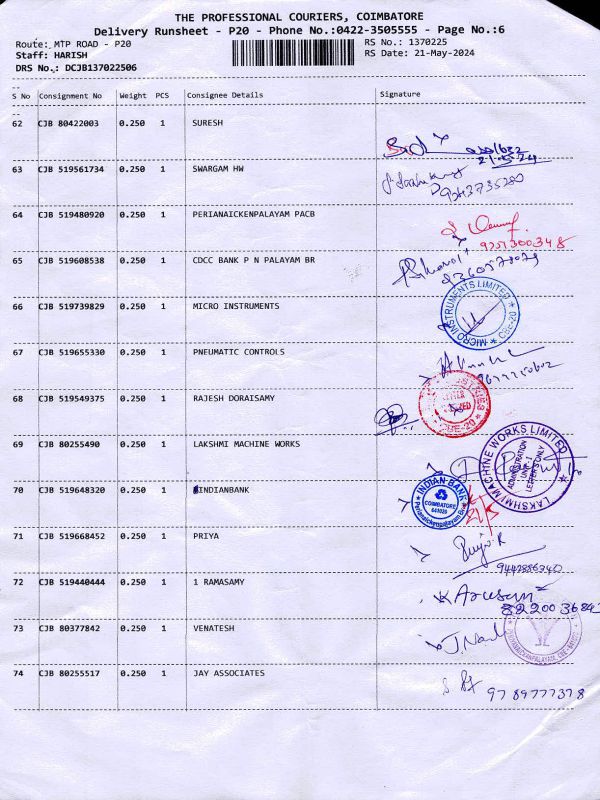 THE PROFESSIONAL COURIERS, COIMBATORE
Delivery Runsheet - P20 - Phone No.:0422-3505555 - Page No.:6
Route: MTP ROAD - P20 RS No.: 1370225
Staff: HARISH RS Date: 21-May-2024
DRS No.: DCJB137022506
S No Consignment No Weight PCS Consignee Details Signature
62 CJB 80422003 0.250 1 SURESH
21.5.24
63 CJB 519561734 0.250 1 SWARGAM HW
64 CJB 519480920 0.250 1 PERIANAICKENPALAYAM PACB
65 CJB 519608538 0.250 1 CDCC BANK P N PALAYAM BR
66 CJB 519739829 0.250 1 MICRO INSTRUMENTS
MICRO INSTRUMENTS LIMITED CBE-20
67 CJB 519655330 0.250 1 PNEUMATIC CONTROLS
68 CJB 519549375 0.250 1 RAJESH DORAISAMY
69 CJB 80255490 0.250 1 LAKSHMI MACHINE WORKS
LAKSHMI MACHINE WORKS LIMITED
ADMINISTRATION
UNIT-I
LETTERS ONLY
70 CJB 519648320 0.250 1 INDIANBANK
INDIAN BANK
COIMBATORE
641020
Perianaickenpalayam Br
71 CJB 519668452 0.250 1 PRIYA
9442886340
72 CJB 519440444 0.250 1 1 RAMASAMY
73 CJB 80377842 0.250 1 VENATESH
74 CJB 80255517 0.250 1 JAY ASSOCIATES
9789777378